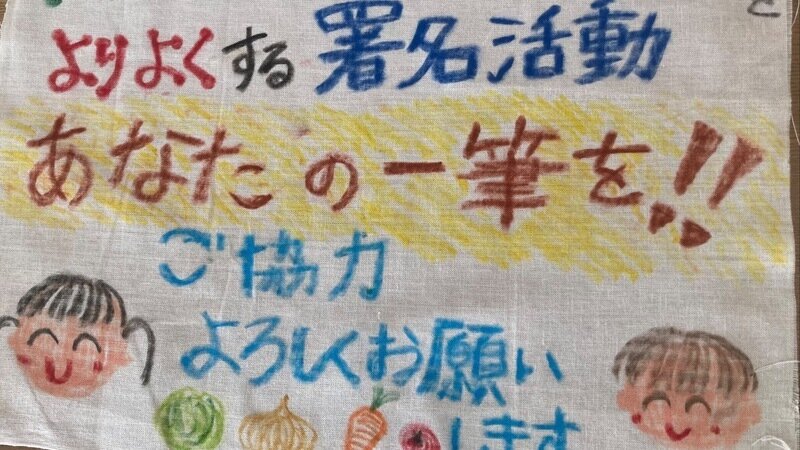 と
よりよくする署名活動
あなたの一筆を!!
ご協力
よろしくお願い
します